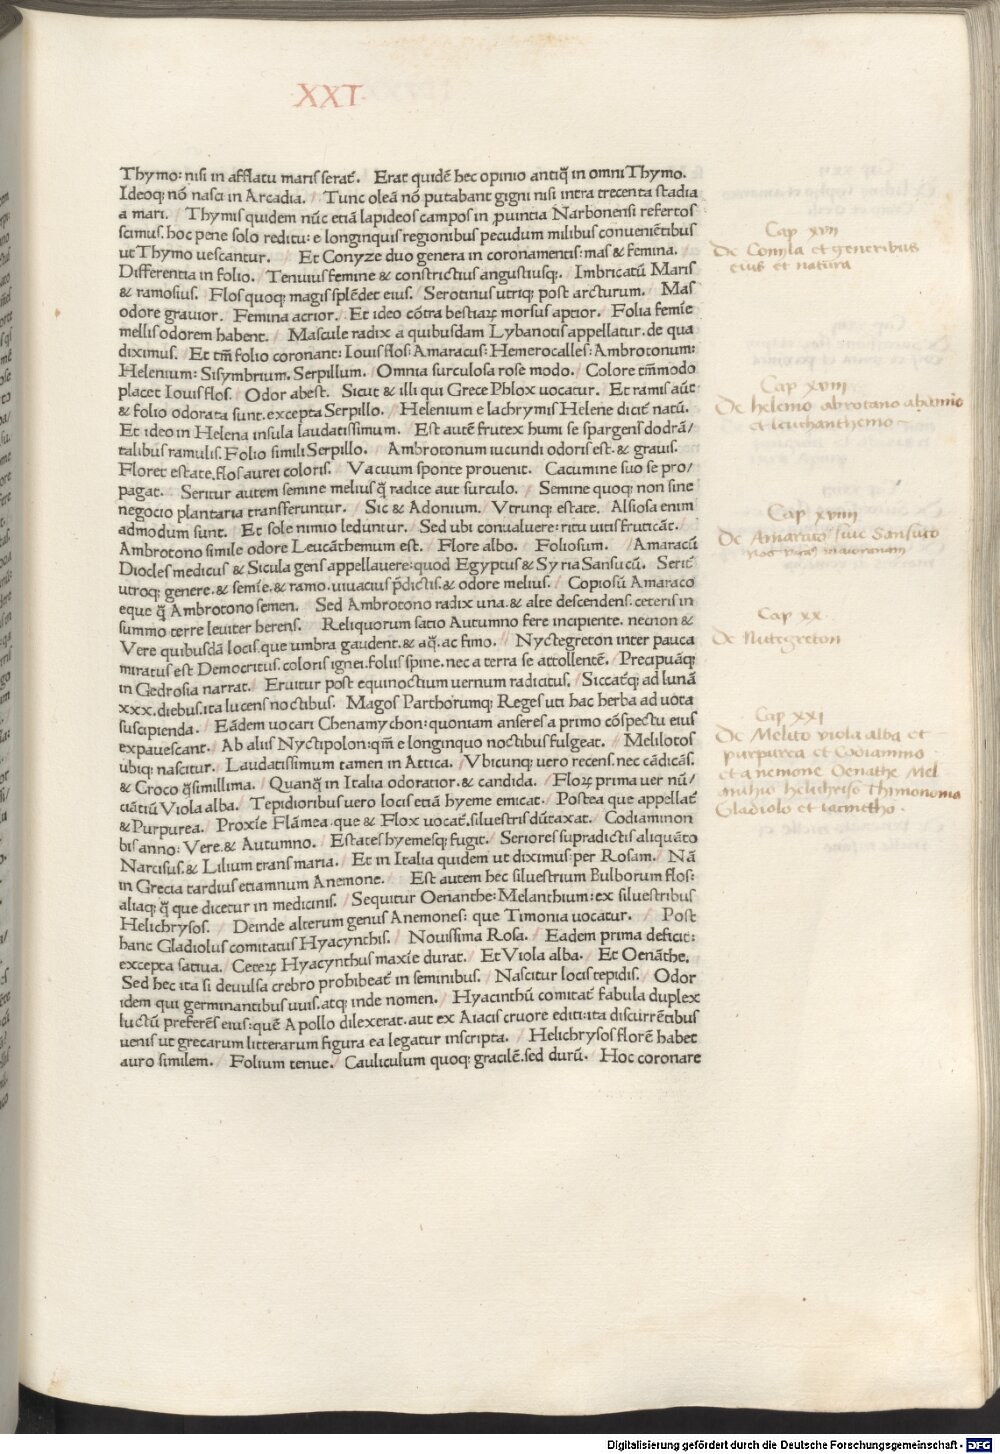 XXI
Thymo: nisi in afflatu maris serat̄. Erat quidē hec opinio antiq̄ in omni Thymo.
Ideoq; nō nasci in Arcadia. Tunc oleā nō putabant gigni nisi intra trecenta stadia
a mari. Thymis quidem nūc etiā lapideos campos in ꝓuintia Narbonensi refertos
scimus. hoc pene solo reditu: e longinquis regionibus pecudum milibus conueniētibus
ut Thymo uescantur. Et Conyze duo genera in coronamentis: mas & femina.
Differentia in folio. Tenuius femine & constrictius angustiusq;. Imbricatū Maris
& ramosius. Flos quoq; magis splēdet eius. Serotinus utriq; post arcturum. Mas
odore grauior. Femina acrior. Et ideo cōtra bestiaꝝ morsus aptior. Folia femīe
mellis odorem habent. Mascule radix a quibusdam Lybanotis appellatur. de qua
diximus. Et tm̄ folio coronant: Iouis flos: Amaracus: Hemerocalles: Ambrotonum:
Helenium: Sisymbrium. Serpillum. Omnia surculosa rose modo. Colore tm̄modo
placet Iouis flos. Odor abest. Sicut & illi qui Grece Phlox uocatur. Et ramis aūt
& folio odorata sunt. excepta Serpillo. Helenium e lachrymis Helene dicit̄ natū.
Et ideo in Helena insula laudatissimum. Est autē frutex humi se spargens dodrā/
talibus ramulis. Folio simili Serpillo. Ambrotonum iucundi odoris est. & grauis.
Floret estate. flos aurei coloris. Vacuum sponte prouenit. Cacumine suo se pro/
pagat. Seritur autem semine melius q̄ radice aut surculo. Semine quoq; non sine
negocio plantaria transferuntur. Sic & Adonium. Vtrunq; estate. Alsiosa enim
admodum sunt. Et sole nimio leduntur. Sed ubi conualuere: ritu uitis fruticāt.
Ambrotono simile odore Leucāthemum est. Flore albo. Foliosum. Amaracū
Diocles medicus & Sicula gens appellauere: quod Egyptus & Syria Sansucū. Serit̄
utroq; genere. & semīe. & ramo. uiuacius p̄dictis. & odore melius. Copiosū Amaraco
eque q̄ Ambrotono semen. Sed Ambrotono radix una. & alte descendens: ceteris in
summo terre leuiter herens. Reliquorum satio Autumno fere incipiente. necnon &
Vere quibusdā locis. que umbra gaudent. & aq̄. ac fimo. Nyctegreton inter pauca
miratus est Democritus. coloris ignei. foliis spine. nec a terra se attollentē. Precipuāq;
in Gedrosia narrat. Eruitur post equinoctium uernum radicitus. Siccat̄q; ad lunā
xxx. diebus. ita lucens noctibus. Magos Parthorumq; Reges uti hac herba ad uota
suscipienda. Eādem uocari Chenamychon: quoniam anseres a primo cōspectu eius
expauescant. Ab aliis Nyctipolon: qm̄ e longinquo noctibus fulgeat. Melilotos
ubiq; nascitur. Laudatissimum tamen in Attica. Vbicunq; uero recens. nec cādicās.
& Croco q̄simillima. Quanq̄ in Italia odoratior. & candida. Floꝝ prima uer nū/
ciātiū Viola alba. Tepidioribus uero locis etiā hyeme emicat. Postea que appellat̄
& Purpurea. Proxīe Flāmea. que & Flox uocat̄. siluestris dūtaxat. Codiaminon
bis anno: Vere. & Autumno. Estates hyemesq; fugit. Seriores supradictis aliquāto
Narcisus. & Lilium trans maria. Et in Italia quidem ut diximus: per Rosam. Nā
in Grecia tardius etiamnum Anemone. Est autem hec siluestrium Bulborum flos:
aliaq; q̄ que dicetur in medicinis. Sequitur Oenanthe: Melanthium: ex siluestribus
Helichrysos. Deinde alterum genus Anemones: que Timonia uocatur. Post
hanc Gladiolus comitatus Hyacynthis. Nouissima Rosa. Eadem prima deficit:
excepta satiua. Ceteꝝ Hyacynthus maxīe durat. Et Viola alba. Et Oenāthe.
Sed hec ita si deuulsa crebro prohibeat̄ in seminibus. Nascitur locis tepidis. Odor
idem qui germinantibus uuis. atq; inde nomen. Hyacinthū comitat̄ fabula duplex
luctū preferēs eius: quē Apollo dilexerat. aut ex Aiacis cruore editi: ita discurrētibus
uenis ut grecarum litterarum figura ea legatur inscripta. Helichrysos florē habet
auro similem. Folium tenue. Cauliculum quoq; gracilē. sed durū. Hoc coronare
Cap xvii
De Conyla et generibus
eius et natura
Cap xviii
De helenio abrotano
et leuchanthemo
Cap xviiii
De Amaraco siue Sansuco
maioranam
Cap xx
De Nictegreton
Cap xxi
De Meliloto viola alba et
purpurea et Codiamino
et anemone Oenathe Mel
anthio helichriso Thimonoma
Gladiolo et iacintho.
Digitalisierung gefördert durch die Deutsche Forschungsgemeinschaft - DFG